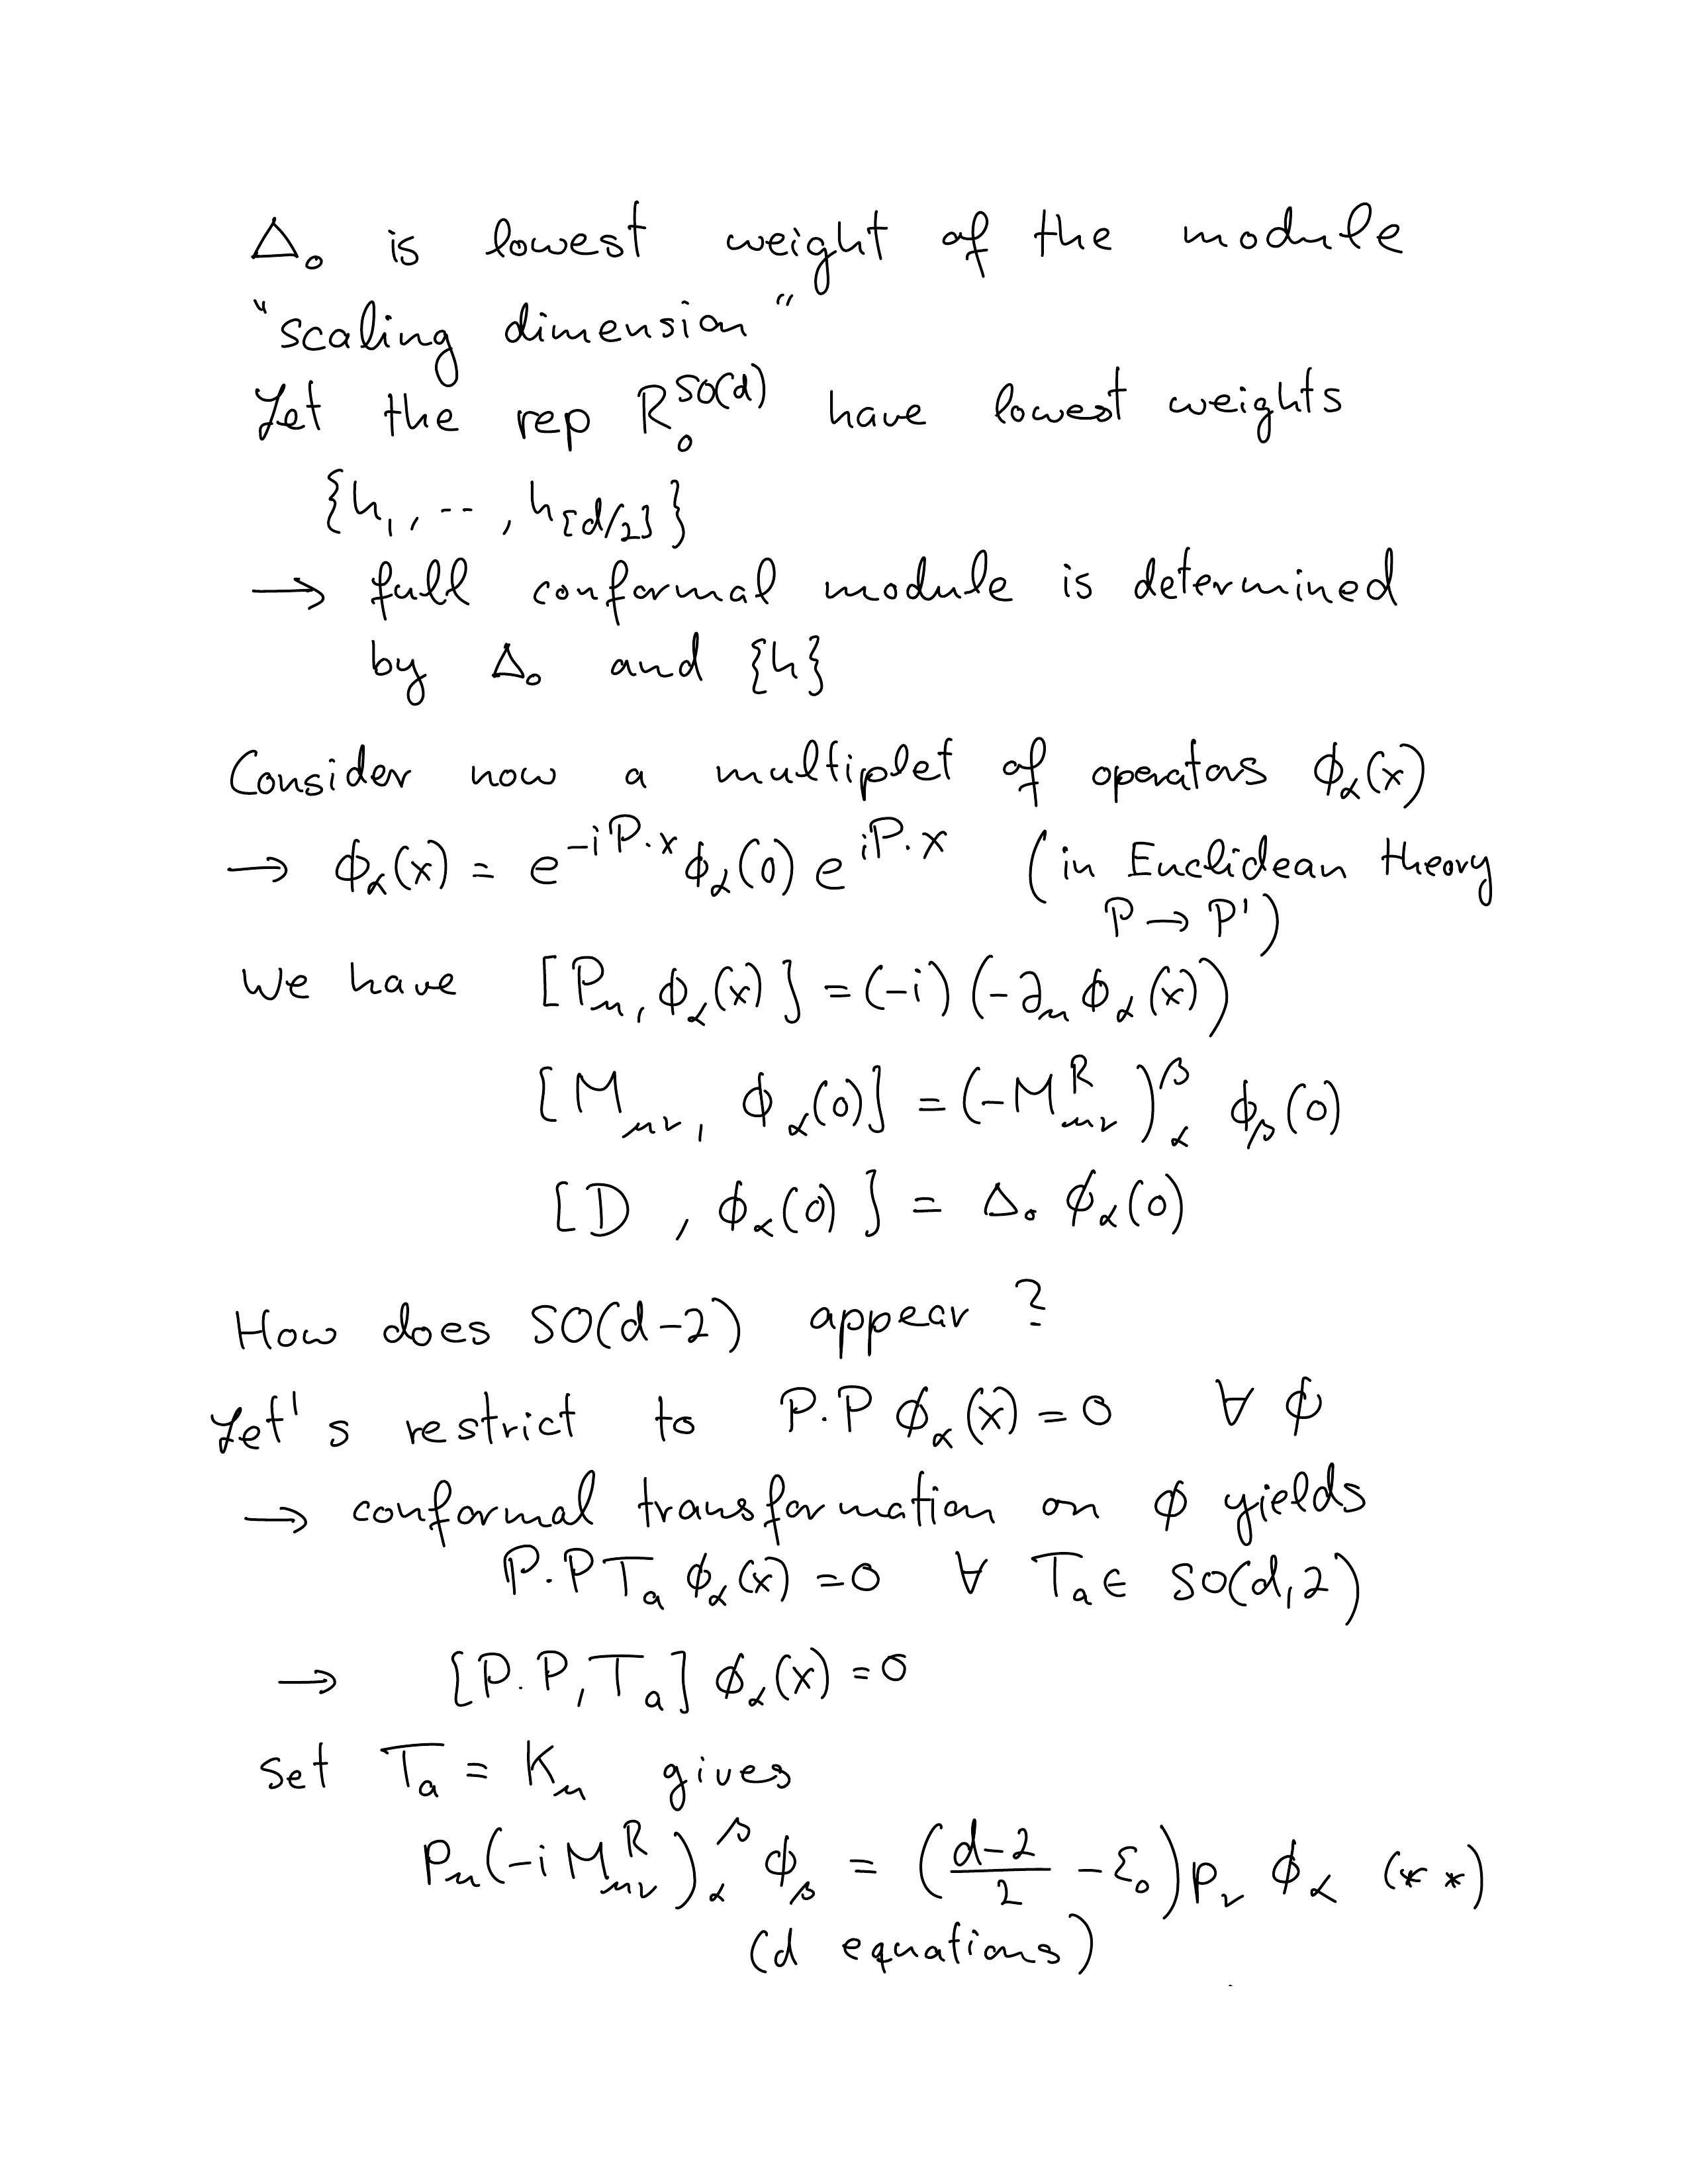 Δ₀ is lowest weight of the module
"scaling dimension"
Let the rep R₀^{SO(d)} have lowest weights
{h₁, -- , h_{[d/2]}}
→ full conformal module is determined
by Δ₀ and {h}
Consider now a multiplet of operators ϕ_α(x)
→ ϕ_α(x) = e^{-iP·x} ϕ_α(0) e^{iP·x} (in Euclidean theory
P → P')
We have [P_μ, ϕ_α(x)] = (-i)(-∂_μ ϕ_α(x))
[M_{μν}, ϕ_α(0)] = (-M^R_{μν})_α^β ϕ_β(0)
[D, ϕ_α(0)] = Δ₀ ϕ_α(0)
How does SO(d-2) appear?
Let's restrict to P·P ϕ_α(x) = 0 ∀ ϕ
→ conformal transformation on ϕ yields
P·P T_a ϕ_α(x) = 0 ∀ T_a ∈ SO(d,2)
→ [P·P, T_a] ϕ_α(x) = 0
set T_a = K_μ gives
P_μ(-i M^R_{μν})_α^β ϕ_β = (\frac{d-2}{2} - ε₀) p_ν ϕ_α (**)
(d equations)